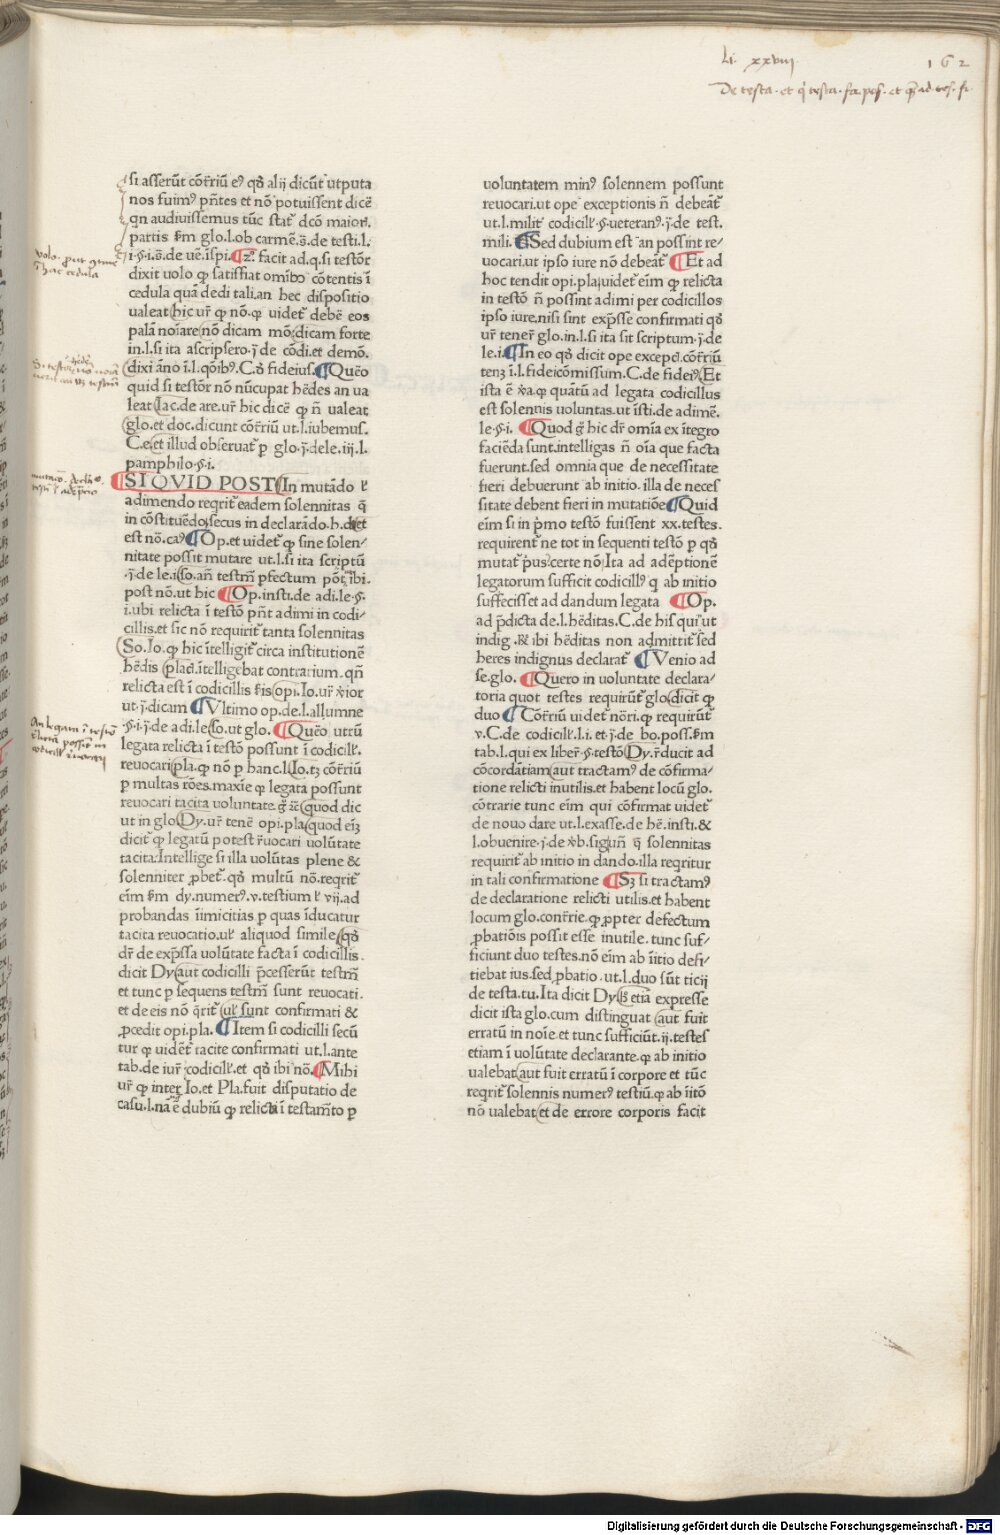 li. xxviij.
162
De testa. et q̄ testa. fa. pos. et qm̄ ad tes. fi.
si asserūt cōtr̄iū eꝰ qđ alij dicūt utputa
nos fuimꝰ pn̄tes et nō potuissent dicē
qn audiuissemus tūc stat̄ dcō maiori.
partis ẜm glo.l.ob carmē.s̄.de testi.l.
i.§.i.s̄.de uē.īspi.¶z̄. facit ad.q.si testōr
dixit uolo ꝙ satisfiat omībꝰ cōtentis ī
cedula quā dedi tali.an hec dispositio
ualeat hic ur̄ ꝙ nō.ꝙ uidet̄ debē eos
palā noīare nō dicam mō dicam forte
in.l.si ita ascripsero.j̄ de cōdi.et demō.
dixi āno ī.l.qōibꝰ.C.đ fideius.¶Quēo
quid si testōr nō nūcupat hēdes an ua
leat Iac.de are.ur̄ hic dicē ꝙ n̄ ualeat
glo.et doc.dicunt cōtr̄iū ut.l.iubemus.
C.e.et illud obseruat̄ p glo.j̄.de le.iij.l.
pamphilo.§.i.
¶SI QVID POST In mutādo ł
adimendo reqrit̄ eadem solennitas q̄
in cōstituēdo secus in declarādo.h.d. et
est nō.caꝰ¶Op.et uidet̄ ꝙ sine solen/
nitate possit mutare ut.l.si ita scriptū
.j̄.de le.i so.an̄ testm̄ pfectum pōt̄ ibi.
post nō.ut hic ¶Op.insti.de adi.le.§.
i.ubi relicta ī testō pn̄t adimi in codi/
cillis.et sic nō requirit̄ tanta solennitas
So.Io.ꝙ hic ītelligit̄ circa institutionē
hēdis placꝫ.ītelligebat contrarium.qn̄
relicta est ī codicillis ẜis opi.Io.ur̄ v̄ior
ut.j̄.dicam ¶Vltimo op.de.l.allumne
.§.i.j̄.de adi.le so.ut glo. ¶Quēo utrū
legata relicta ī testō possunt ī codicilł.
reuocari pla.ꝙ nō p hanc.l.Io.tꝫ cōtr̄iū
p multas rōes.maxīe ꝙ legata possunt
reuocari tacita uoluntate g̊ ēt̄ quod dic
ut in glo Dy.ur̄ tenē opi.pla quod eīꝫ
dicit̄ ꝙ legatū potest r̄uocari uolūtate
tacita.Intellige si illa uolūtas plene &
solenniter ꝓbet̄.qđ multū nō.reqrit̄
eīm ẜm dy.numerꝰ.v.testium ł vij.ad
probandas īimicitias p quas īducatur
tacita reuocatio.uł aliquod simile qđ
dr̄ de exp̄ssa uolūtate facta ī codicillis.
dicit Dy aut codicilli p̄cesserūt testm̄
et tunc p sequens testm̄ sunt reuocati.
et de eis nō q̄rit̄ uł sunt confirmati &
ꝓcedit opi.pla. ¶Item si codicilli secū
tur ꝙ uidēt̄ tacite confirmati ut.l.ante
tab.de iur̄ codicilł.et qđ ibi nō.¶Mihi
ur̄ ꝙ inter Io.et Pla.fuit disputatio de
casu.l.nā ē dubiū ꝙ relicta ī testam̄to p
voluntatem minꝰ solennem possunt
reuocari.ut ope exceptionis n̄ debeāt̄
ut.l.milit̄ codicilł.§.ueteranꝰ.j̄.de test.
mili.¶Sed dubium est an possint re/
uocari.ut ipso iure nō debeāt̄ ¶Et ad
hoc tendit opi.pla uidet̄ eīm ꝙ relicta
in testō n̄ possint adimi per codicillos
ipso iure.nisi sint exp̄sse confirmati qđ
ur̄ tener̄ glo.in.l.si ita sit scriptum.j̄.de
le.i.¶In eo qđ dicit ope excepcī.cōtr̄iū
tenꝫ ī.l.fideicōmissum.C.de fideiꝰ.Et
ista ē v̄a.ꝙ quātū ad legata codicillus
est solennis uoluntas.ut īsti.de adimē.
le.§.i. ¶Quod g̊ hic dr̄ omīa ex ītegro
faciēda sunt.intelligas n̄ oīa que facta
fuerunt.sed omnia que de necessitate
fieri debuerunt ab initio.illa de neces
sitate debent fieri in mutatiōe¶Quid
eīm si in p̄mo testō fuissent xx.testes.
requirent̄ ne tot in sequenti testō p qđ
mutat̄ p̄us certe nō Ita ad adēptionē
legatorum sufficit codicillꝰ q̄ ab initio
suffecisset ad dandum legata ¶Op.
ad p̄dicta de.l.hēditas.C.de his qui ut
indig.& ibi hēditas non admittit̄ sed
heres indignus declarat̄ ¶Venio ad
se.glo. ¶Quero in uoluntate declara/
toria quot testes requirūt̄ glo dicit ꝙ
duo ¶Cōtr̄iū uidet̄ nōri.ꝙ requirūt̄
v.C.de codicilł.l.i.et.j̄.de bo.poss.ẜm
tab.l.qui ex liber̄.§.testō Dy.r̄ducit ad
cōcordātiam aut tractamꝰ de cōfirma/
tione relicti inutilis.et habent locū glo.
cōtrarie tunc eīm qui cōfirmat uidet̄
de nouo dare ut.l.exasse.de hē.insti.&
l.obuenire.j̄.de v̄b.sig un̄ q̄ solennitas
requirit̄ ab initio in dando.illa reqritur
in tali confirmatione ¶Sꝫ si tractamꝰ
de declaratione relicti utilis.et habent
locum glo.contr̄ie.ꝙ ꝓpter defectum
ꝓbatiōis possit esse inutile.tunc suf/
ficiunt duo testes.nō eīm ab īitio defi/
tiebat ius.sed ꝓbatio.ut.l.duo sūt ticij
de testa.tu.Ita dicit Dy lꝫ etiā expresse
dicit ista glo.cum distinguat aut fuit
erratū in noīe.et tunc sufficiūt.ij.testes
etiam ī uolūtate declarante.ꝙ ab initio
ualebat aut fuit erratū ī corpore et tūc
reqrit̄ solennis numerꝰ testiū.ꝙ ab īitō
nō ualebat et de errore corporis facit
Digitalisierung gefördert durch die Deutsche Forschungsgemeinschaft - DFG